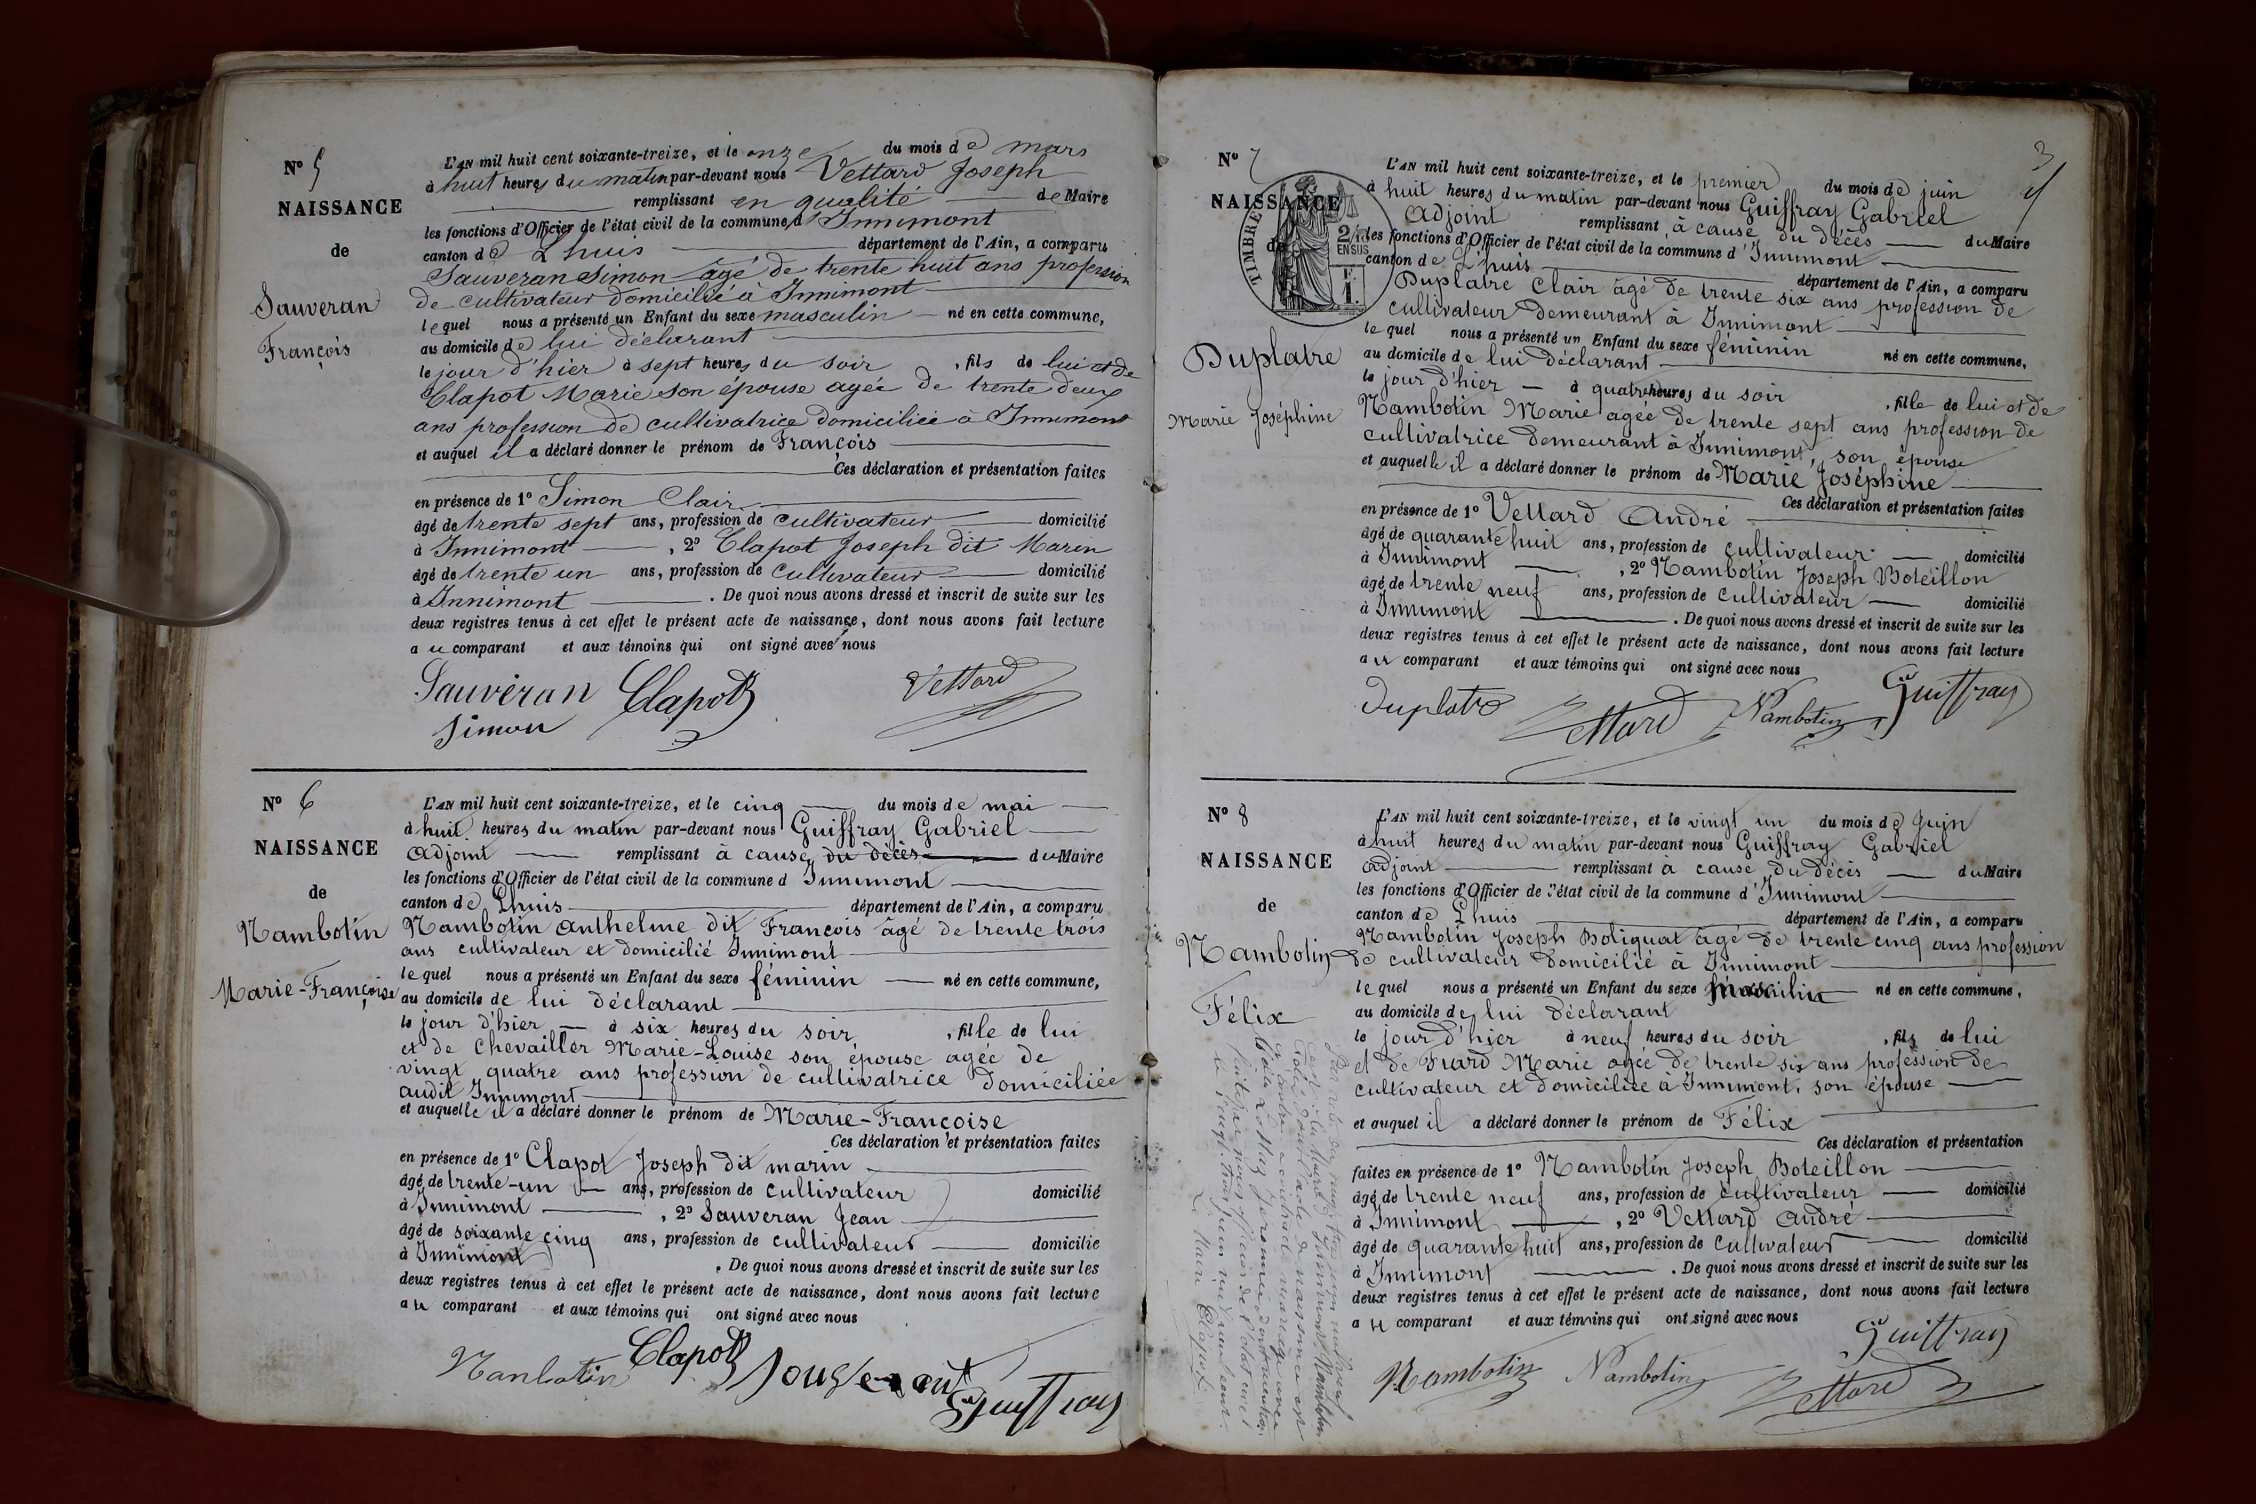 N° 5
NAISSANCE
de
Sauveran
François
L'AN mil huit cent soixante-treize, et le onze du mois de mars
à huit heures du matin par-devant nous Vettard Joseph
remplissant en qualité de Maire
les fonctions d'Officier de l'état civil de la commune d'Innimont
canton de Lhuis département de l'Ain, a comparu
Sauveran Simon âgé de trente huit ans profession
de cultivateur domicilié à Innimont
lequel nous a présenté un Enfant du sexe masculin né en cette commune,
au domicile de lui déclarant
le jour d'hier à sept heures du soir, fils de lui et de
Clapot Marie son épouse agée de trente deux
ans profession de cultivatrice domiciliée à Innimont
et auquel il a déclaré donner le prénom de François
Ces déclaration et présentation faites
en présence de 1° Simon Clair
âgé de trente sept ans, profession de cultivateur domicilié
à Innimont, 2° Clapot Joseph dit Marin
âgé de trente un ans, profession de cultivateur domicilié
à Innimont. De quoi nous avons dressé et inscrit de suite sur les
deux registres tenus à cet effet le présent acte de naissance, dont nous avons fait lecture
au comparant et aux témoins qui ont signé avec nous
Sauvéran Clapot Vettard
Simon
N° 6
NAISSANCE
de
Nambotin
Marie-Françoise
L'AN mil huit cent soixante-treize, et le cinq du mois de mai
à huit heures du matin par-devant nous Guiffray Gabriel
Adjoint remplissant à cause du décès du Maire
les fonctions d'Officier de l'état civil de la commune d Innimont
canton de Lhuis département de l'Ain, a comparu
Nambotin Anthelme dit François âgé de trente trois
ans cultivateur et domicilié Innimont
lequel nous a présenté un Enfant du sexe féminin né en cette commune,
au domicile de lui déclarant
le jour d'hier à six heures du soir, fille de lui
et de Chevailler Marie-Louise son épouse agée de
vingt quatre ans profession de cultivatrice domiciliée
audit Innimont
et auquelle il a déclaré donner le prénom de Marie-Françoise
Ces déclaration et présentation faites
en présence de 1° Clapot Joseph dit marin
âgé de trente-un ans, profession de cultivateur domicilié
à Innimont, 2° Sauveran Jean
âgé de soixante cinq ans, profession de cultivateur domicilié
à Innimont. De quoi nous avons dressé et inscrit de suite sur les
deux registres tenus à cet effet le présent acte de naissance, dont nous avons fait lecture
au comparant et aux témoins qui ont signé avec nous
Nambotin Clapot Guiffray
3
N° 7
NAISSANCE
de
TIMBRE
2/10
EN SUS
Duplatre
Marie Joséphine
L'AN mil huit cent soixante-treize, et le premier du mois de juin
à huit heures du matin par-devant nous Guiffray Gabriel
Adjoint remplissant à cause du décès du Maire
les fonctions d'Officier de l'état civil de la commune d'Innimont
canton de Lhuis département de l'Ain, a comparu
Duplatre Clair âgé de trente six ans profession de
cultivateur demeurant à Innimont
lequel nous a présenté un Enfant du sexe féminin né en cette commune,
au domicile de lui déclarant
le jour d'hier à quatre heures du soir, fille de lui et de
Nambotin Marie agée de trente sept ans profession de
cultivatrice demeurant à Innimont, son épouse
et auquelle il a déclaré donner le prénom de Marie Joséphine
Ces déclaration et présentation faites
en présence de 1° Vettard André
âgé de quarante huit ans, profession de cultivateur domicilié
à Innimont, 2° Nambotin Joseph Boteillon
âgé de trente neuf ans, profession de cultivateur domicilié
à Innimont. De quoi nous avons dressé et inscrit de suite sur les
deux registres tenus à cet effet le présent acte de naissance, dont nous avons fait lecture
au comparant et aux témoins qui ont signé avec nous
Duplatre Vettard Nambotin Guiffray
N° 8
NAISSANCE
de
Nambotin
Félix
L'AN mil huit cent soixante-treize, et le vingt un du mois de Juin
à huit heures du matin par-devant nous Guiffray Gabriel
Adjoint remplissant à cause du décès du Maire
les fonctions d'Officier de l'état civil de la commune d'Innimont
canton de Lhuis département de l'Ain, a comparu
Nambotin Joseph Botiquat âgé de trente cinq ans profession
de cultivateur domicilié à Innimont
lequel nous a présenté un Enfant du sexe masculin né en cette commune,
au domicile de lui déclarant
le jour d'hier à neuf heures du soir, fils de lui
et de Frard Marie agée de trente six ans profession de
cultivateur et domiciliée à Innimont, son épouse
et auquel il a déclaré donner le prénom de Félix
Ces déclaration et présentation
faites en présence de 1° Nambotin Joseph Boteillon
âgé de trente neuf ans, profession de cultivateur domicilié
à Innimont, 2° Vettard André
âgé de quarante huit ans, profession de cultivateur domicilié
à Innimont. De quoi nous avons dressé et inscrit de suite sur les
deux registres tenus à cet effet le présent acte de naissance, dont nous avons fait lecture
au comparant et aux témoins qui ont signé avec nous
Nambotin Nambotin Vettard Guiffray